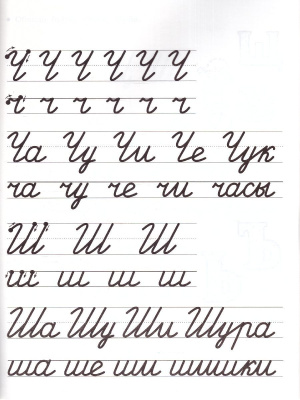 Ч Ч Ч Ч Ч Ч
ч ч ч ч ч ч
Ча Чу Чи Че Чук
ча чу че чи часы
Ш Ш Ш
ш ш ш ш
Ша Шу Ши Шура
ша ше ши шишки